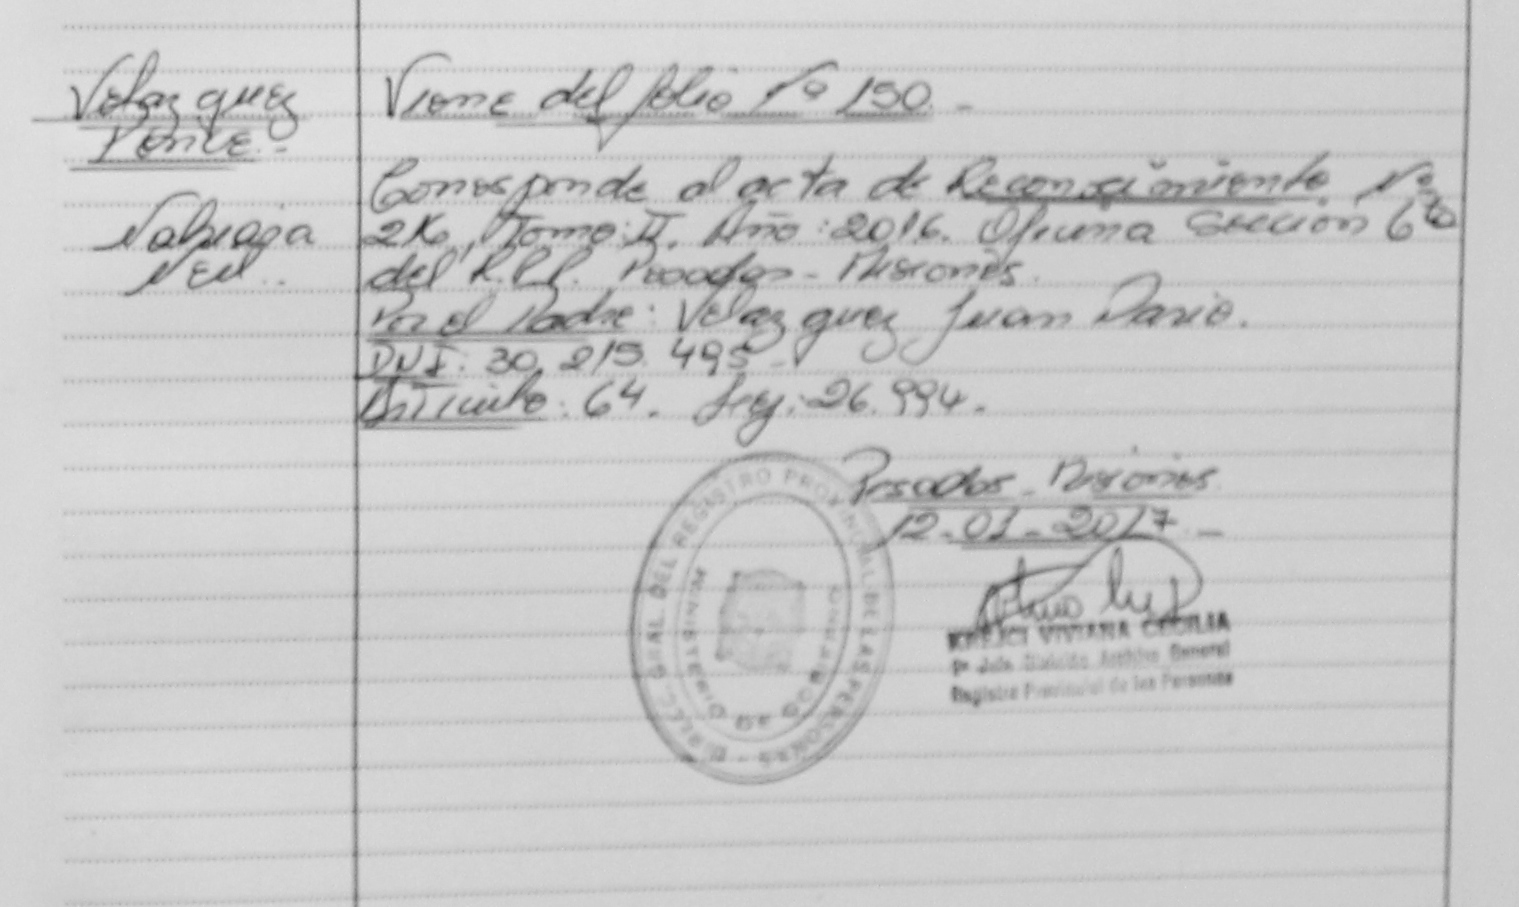 Velazquez
Ponce.-
Viene del folio Nº 150.-
Corresponde al acta de Reconocimiento Nº
Tomo: II. Año: 2016. Oficina Sección 6ta
del R.P.P. Posadas - Misiones.
Por el Padre: Velazquez Juan Dario.
DNI: 30.215.495-
Artículo: 64. Ley: 26.994.
Posadas - Misiones
12-01-2017.-
DIREC. GRAL. DEL REGISTRO PROVINCIAL DE LAS PERSONAS
MINISTERIO DE GOBIERNO
KREJCI VIVIANA CECILIA
División Archivo General
Registro Provincial de las Personas